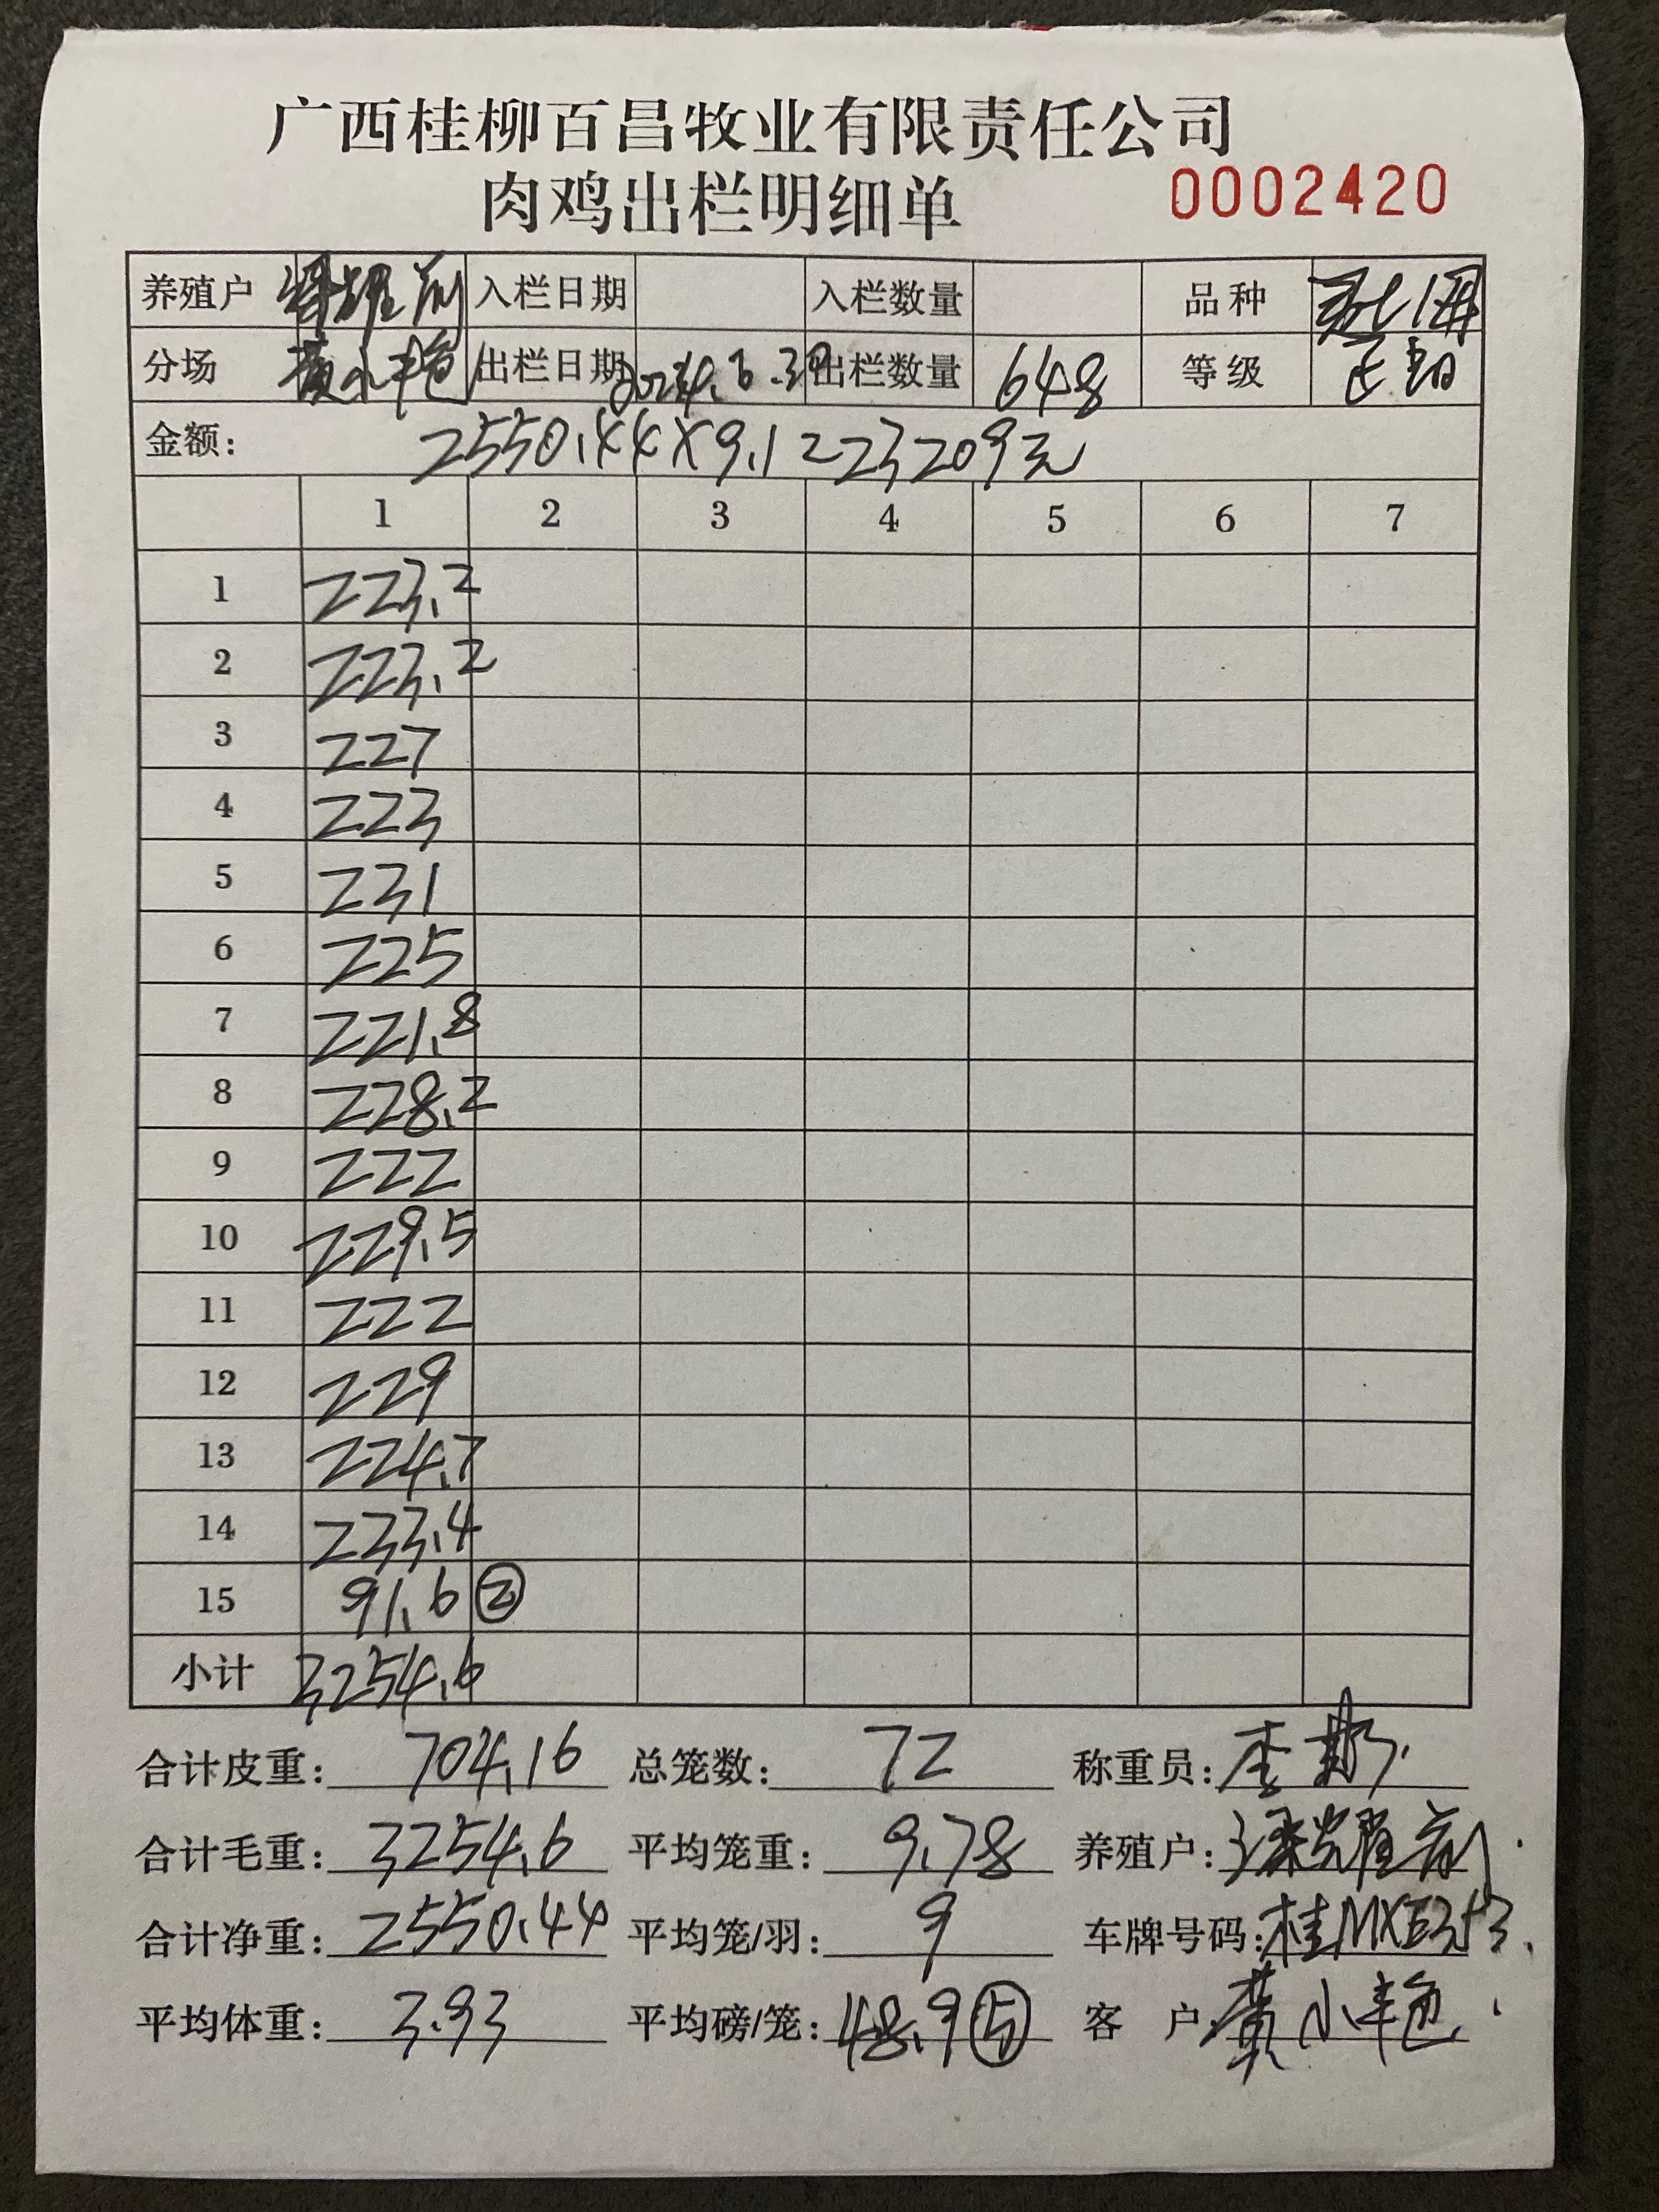 广西桂柳百昌牧业有限责任公司
肉鸡出栏明细单 0002420
养殖户 入栏日期 入栏数量 品种
分场 黄小艳 出栏日期 出栏数量 648 等级
金额： 2550.44×9.1=23209元
1 2 3 4 5 6 7
1 223.2
2 223.2
3 227
4 223
5 231
6 225
7 221.8
8 228.2
9 222
10 229.5
11 222
12 229
13 224.7
14 233.4
15 91.6 ②
小计 3254.6
合计皮重：704.16 总笼数：72 称重员：李
合计毛重：3254.6 平均笼重：9.78 养殖户：梁耀
合计净重：2550.44 平均笼/羽：9 车牌号码：
平均体重：3.93 平均磅/笼：48.9⑤ 客 户：黄小艳